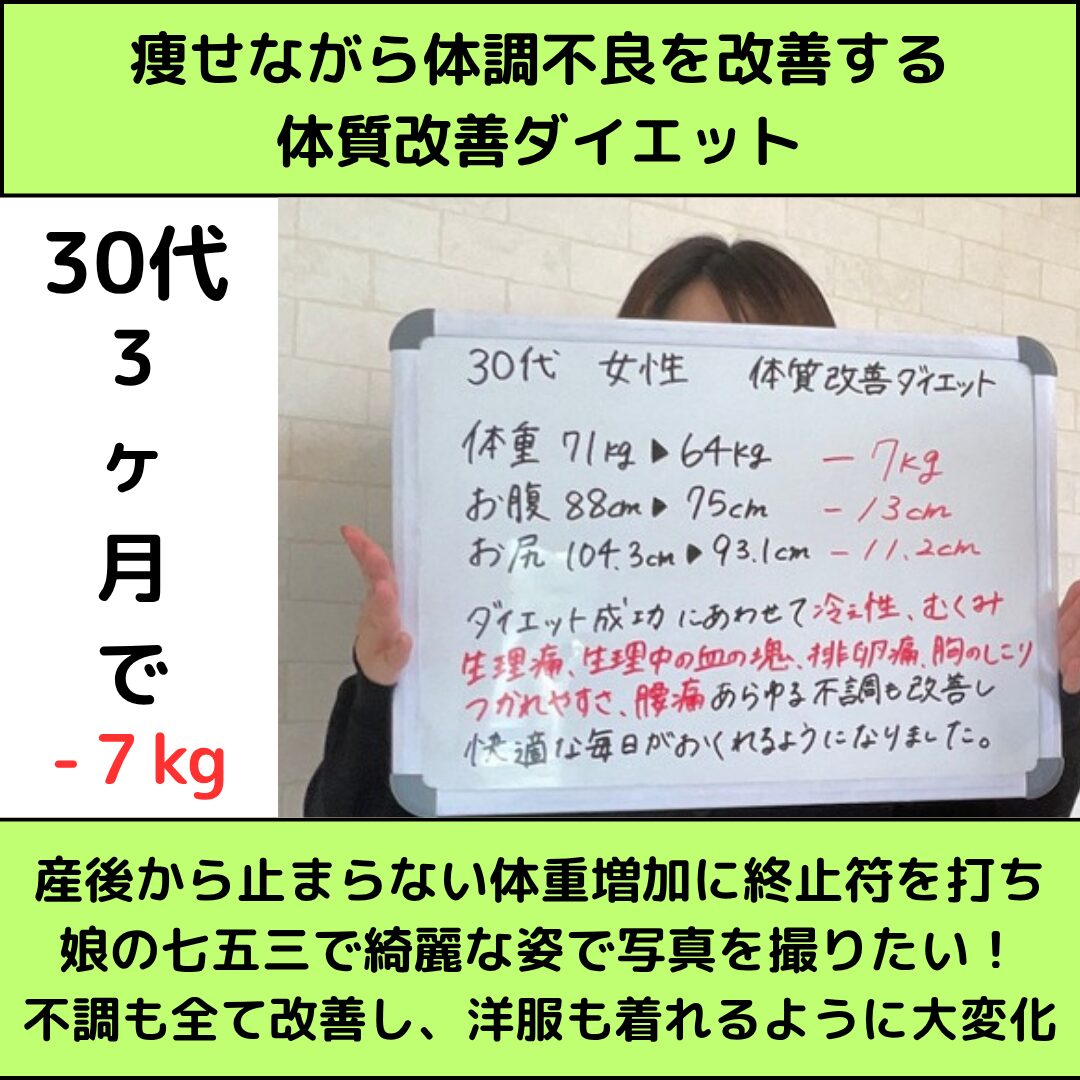 痩せながら体調不良を改善する
体質改善ダイエット
30代
3
ヶ
月
で
-7kg
30代 女性 体質改善ダイエット
体重 71kg▶64kg -7kg
お腹 88cm▶75cm -13cm
お尻 104.3cm▶93.1cm -11.2cm
ダイエット成功にあわせて冷え性、むくみ
生理痛、生理中の血の塊、排卵痛、胸のしこり
つかれやすさ、腰痛あらゆる不調も改善し
快適な毎日がおくれるようになりました。
産後から止まらない体重増加に終止符を打ち
娘の七五三で綺麗な姿で写真を撮りたい！
不調も全て改善し、洋服も着れるように大変化